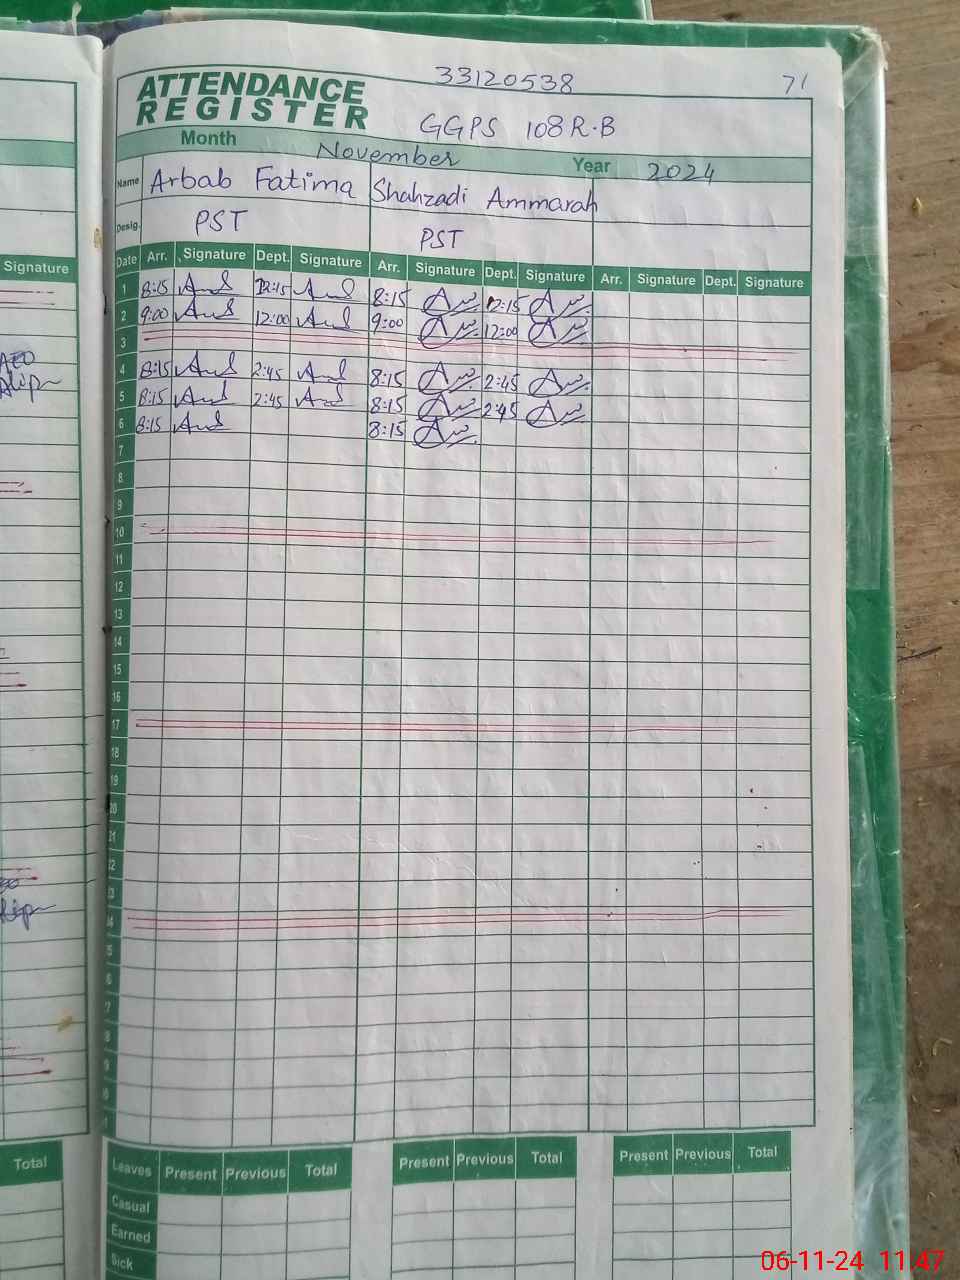 33120538 71
ATTENDANCE
REGISTER
GGPS 108 R.B
Month November Year 2024
Name Arbab Fatima Shahzadi Ammarah
Desig. PST PST
Date Arr. Signature Dept. Signature Arr. Signature Dept. Signature Arr. Signature Dept. Signature
Signature
1 8:15 12:15 8:15 12:15
2 9:00 12:00 9:00 12:00
3
AEO
4 8:15 2:45 8:15 2:45
5 8:15 2:45 8:15 2:45
6 8:15 8:15
7
8
9
10
11
12
13
14
15
16
17
18
19
20
21
22
23
24
5
6
7
8
9
0
Total
Leaves Present Previous Total Present Previous Total Present Previous Total
Casual
Earned
Sick
06-11-24 11:47